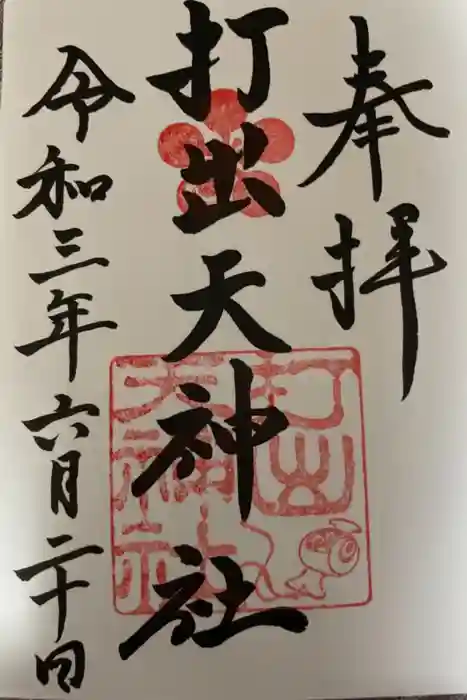 奉拝
打出天神社
令和三年六月二十日
打出
天神社